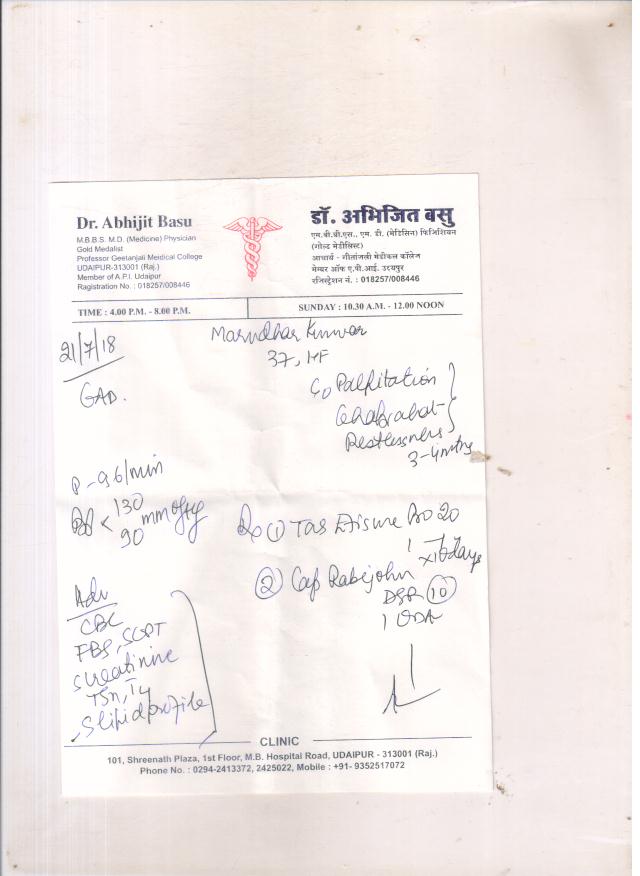 Dr. Abhijit Basu
M.B.B.S. M.D. (Medicine) Physician
Gold Medalist
Professor Geetanjali Meidical College
UDAIPUR-313001 (Raj.)
Member of A.P.I. Udaipur
Ragistration No. : 018257/008446
डॉ. अभिजित बसु
एम.बी.बी.एस., एम. डी. (मेडिसिन) फिजिशियन
(गोल्ड मेडीलिस्ट)
आचार्य - गीतांजली मेडीकल कॉलेज
मेम्बर ऑफ ए.पी.आई. उदयपुर
रजिस्ट्रेशन नं. : 018257/008446
TIME : 4.00 P.M. - 8.00 P.M.
SUNDAY : 10.30 A.M. - 12.00 NOON
Marudhar Kunwar
21/7/18
37,
GAD.
C/o Palpitation
Ghabrahat
Restlessness
3-4 mths
P - 96/min
130
90
mm of Hg
Rx ① Tab 20
1 x 10 days
② Cap Rabijohn
DSR ⑩
1 ODA
Adv
CBC
FBS, SGPT
S creatinine
TSH, T4
S lipid profile
CLINIC
101, Shreenath Plaza, 1st Floor, M.B. Hospital Road, UDAIPUR - 313001 (Raj.)
Phone No. : 0294-2413372, 2425022, Mobile : +91- 9352517072